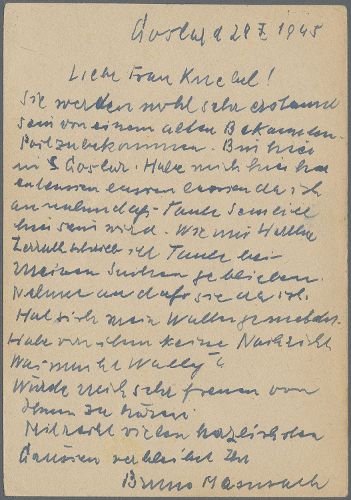 Goslar d 28 X. 1945
Liebe Frau Knebel!
Sie werden wohl sehr erstaunt
sein von einem alten Bekannten
Post zu bekommen. Bin hier
in Goslar. Habe mich hier
entlassen lassen da ich
annahm daß Tante
hier sein wird. Wie mir
schrieb ist Tante bei
meinen Sachen geblieben.
Nehme an daß sie da ist.
Hat sich mein Walter gemeldet.
Habe von ihm keine Nachricht
Was macht Wally?
Würde mich sehr freuen von
Ihnen zu hören.
Mit recht vielen herzlichsten
Grüssen verbleibt Ihr
Bruno